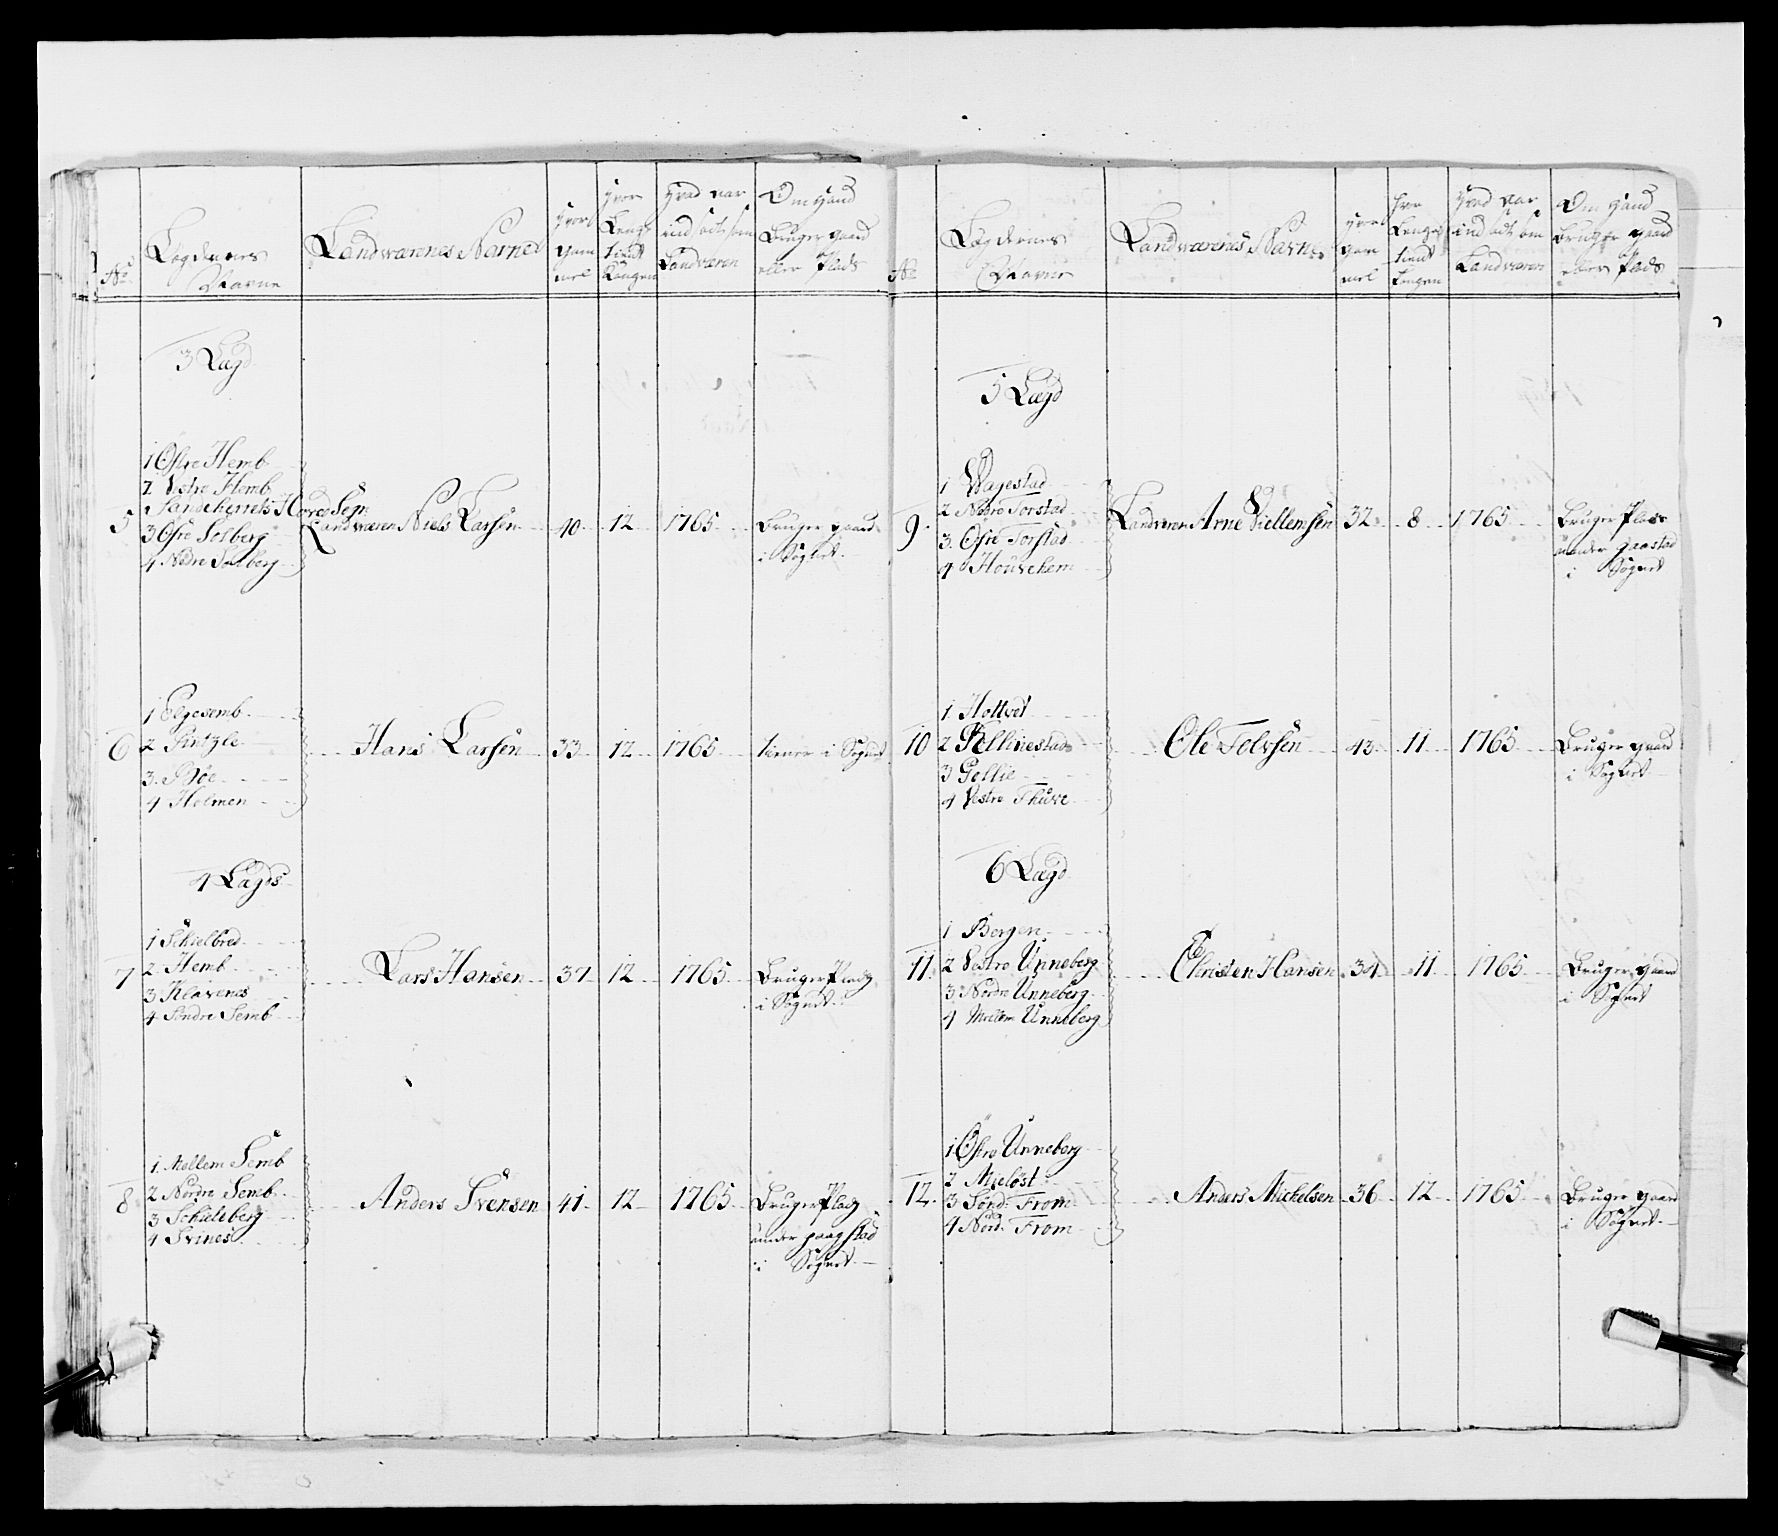 No.
Lægdernes Navne
Landværenes Navne
Hvor gammel
Hvor Lenge tient Kongen
Hvad aar ind sadt som Landværen
Om Hand Bruger gaard eller Plads
3 Lægd
1 Østre Hemb
2 Vestre Hemb
Sandeherrets Hoved Sogn
3 Øfre Solberg
4 Nedre Solberg
5 Landværen Niels Larsen 40. 12 1765 Bruger gaard
i Sognet.
1 Elgesemb
2 Pintzle
3. Bøe
4 Holmen
6 Hans Larsen 33 12 1765 tiener i Sognet
4 Lægds
1 Schielbred
2. Hemb
3 Klavenes
4 Søndre Semb
7 Lars Hansen 37 12 1765 Bruger Plads
i Sognet.
1. Mellem Semb
2 Nordre Semb
3 Schieleberg
4 Svines
8 Anders Svensen 41. 12 1765 Bruger Plads
under
i Sognet
No.
Lægdernes Navne
Landværenes Navne
Hvor gammel
Hvor Lenge tient Kongen
Hvad aar ind sadt om Landværen
Om Hand Bruger gaard eller Plads
5 Lægd
1 Wagestad
2 Nedre Torstad
3. Øfre Torstad
4 Houvehem
9. Landværen Arne Viellemsen 32 8 1765 Bruger Plads
under
i Sognet
1. Holtvet
2
3 Gellie
4 Vestre Thuve
10 Ole Tolvsen 43. 11 1765 Bruger gaard
i Sognet
6 Lægd
1 Bergen
2 Vestre Unneberg
3 Nordre Unneberg
4 Mellem Unneberg
11. Christen Hansen 34 11 1765 Bruger gaard
i Sognet
1. Østre Unneberg
2 Mieløst
3 Sønd: From
4 Nord: From
12. Anders Michelsen 36 12 1765 Bruger gaard
i Sognet